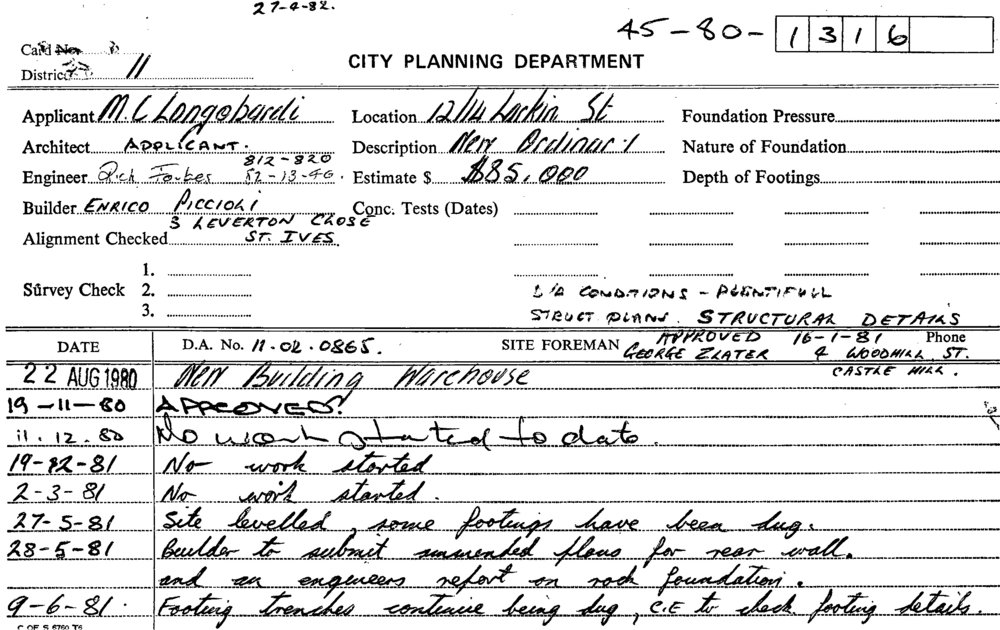 27-4-82.
45-80-1316
Card No.
District 11
CITY PLANNING DEPARTMENT
Applicant M. C Longobardi Location 12/14 Larkin St Foundation Pressure
Architect APPLICANT. Description New Ordinary Nature of Foundation
812-820
Engineer Rick Forbes 82-13-46. Estimate $ $85,000 Depth of Footings
Builder ENRICO PICCIOLI Conc. Tests (Dates)
3 LEVERTON CLOSE
Alignment Checked ST. IVES
1.
Survey Check 2.
3.
CONDITIONS - PLENTIFULL
STRUCT PLANS. STRUCTURAL DETAILS
APPROVED 16-1-81
DATE D.A. No. 11.02.0865. SITE FOREMAN GEORGE ZLATER 4 WOODHILL ST. Phone
CASTLE HILL.
22 AUG 1980 New Building Warehouse
19-11-80 APPROVED.
11.12.80 No work started to date.
19-2-81 No work started
2-3-81 No work started.
27-5-81 Site levelled, some footings have been dug.
28-5-81 Builder to submit ammended plans for rear wall.
and an engineers report on rock foundation.
9-6-81. Footing trenches continue being dug, C.E to check footing details.
C OF S 6760 T6